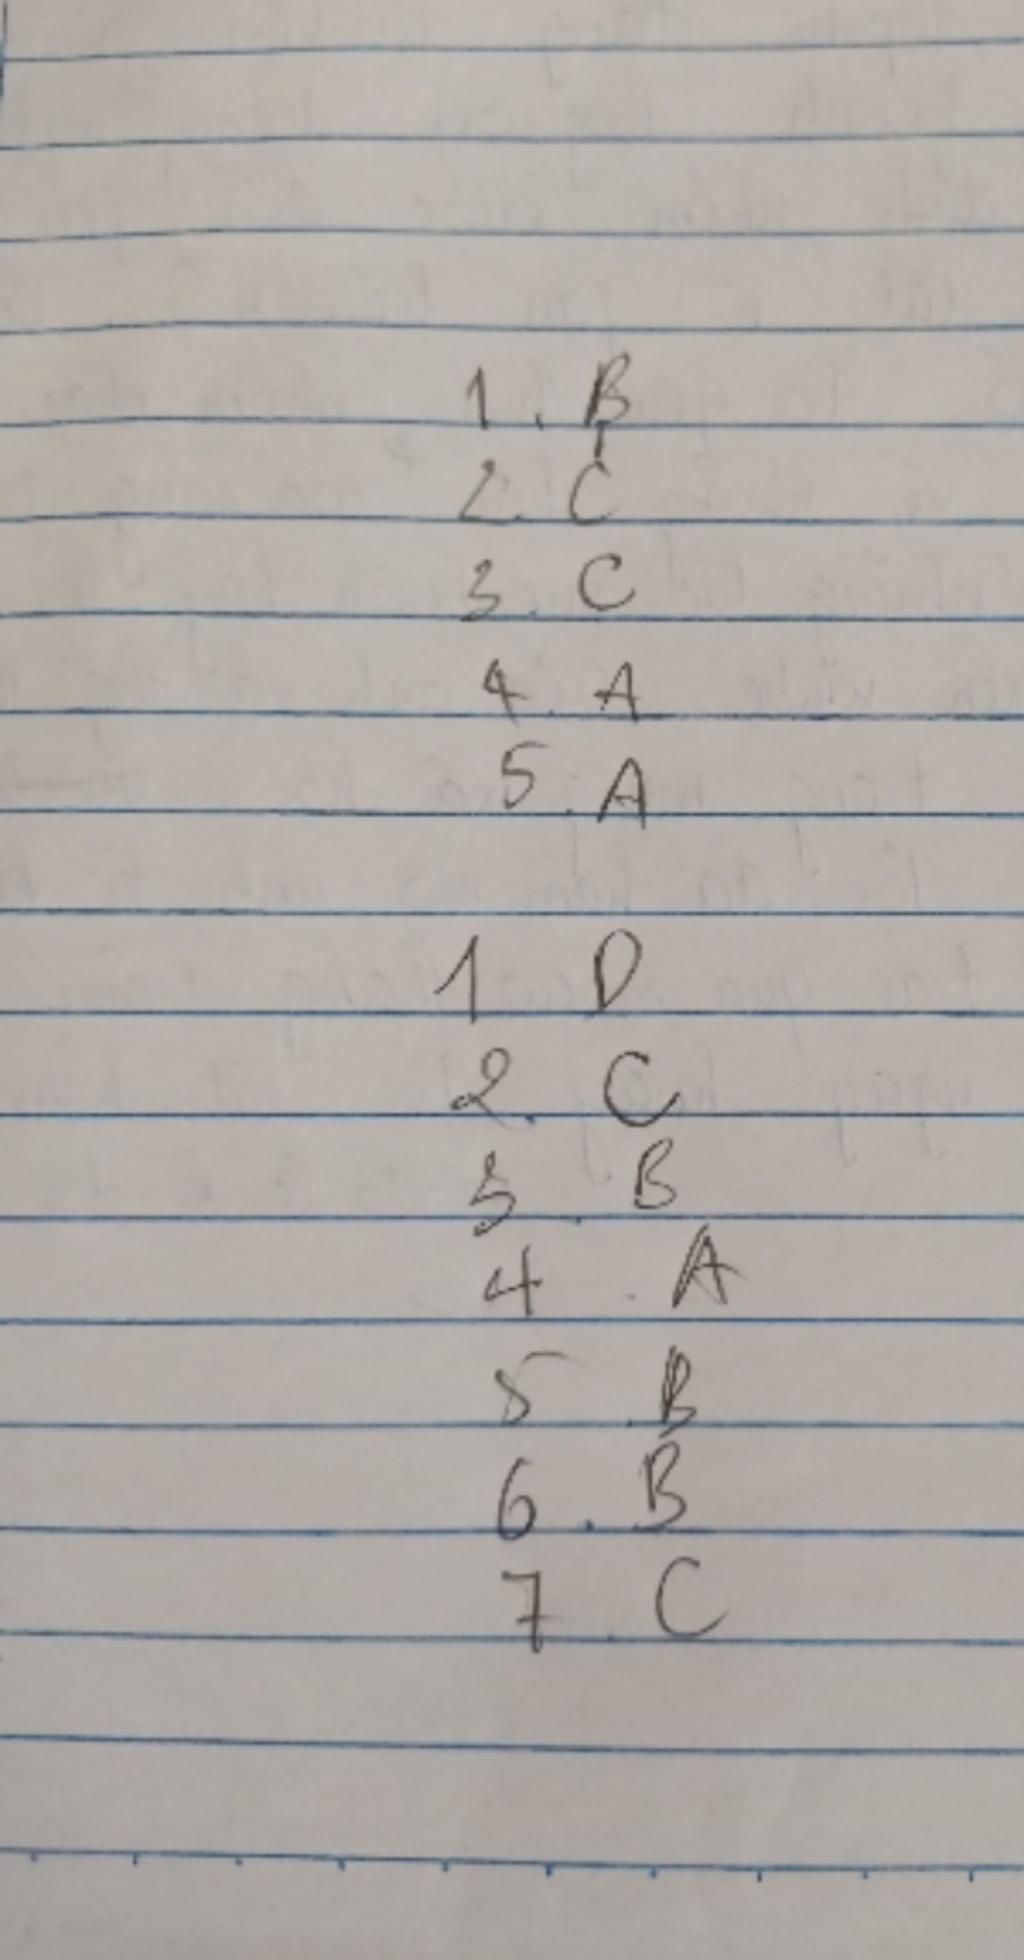 1. B
2. C
3. C
4. A
5. A
1 D
2. C
3. B
4. A
5. B
6. B
7. C